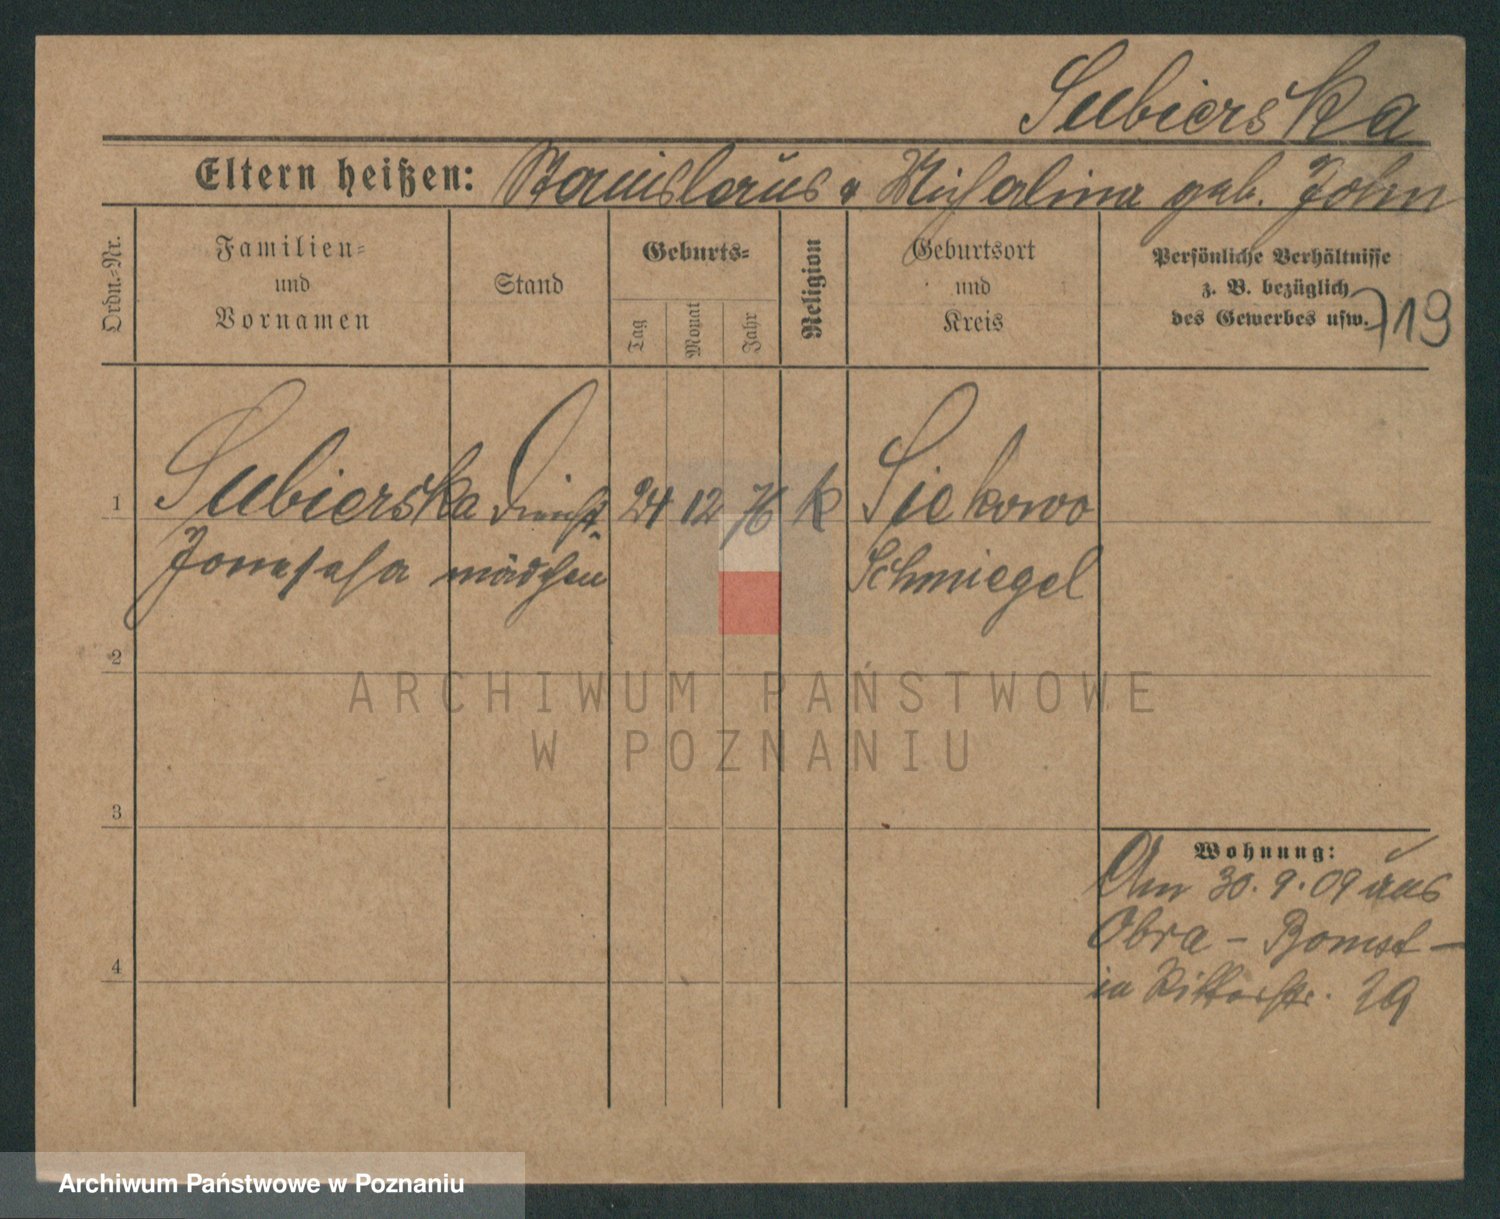 Subierska
Eltern heißen: Stanislaus & Michalina geb. John
Ordn.=Nr.
Familien=
und
Vornamen
Stand
Geburts=
Tag
Monat
Jahr
Religion
Geburtsort
und
Kreis
Persönliche Verhältnisse
z. B. bezüglich
des Gewerbes usw.
719
1 Subierska Dienst 24 12 76 k Siekowo
Josepha mädchen Schmiegel
2
3
4
Wohnung:
Am 30.9.09 aus
Obra - Bomst -
in Ritterstr. 29
ARCHIWUM PAŃSTWOWE
W POZNANIU
Archiwum Państwowe w Poznaniu